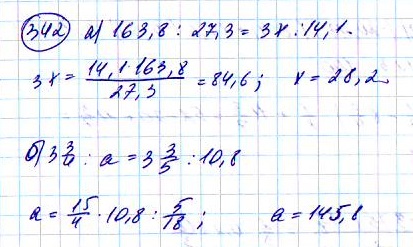 342 а) 163,8 : 27,3 = 3x : 14,1.
3x = \frac{14,1·163,8}{27,3} = 84,6; x = 28,2.
б) 3 3/4 : a = 3 3/5 : 10,8
a = 15/4 · 10,8 : 5/18; a = 145,8